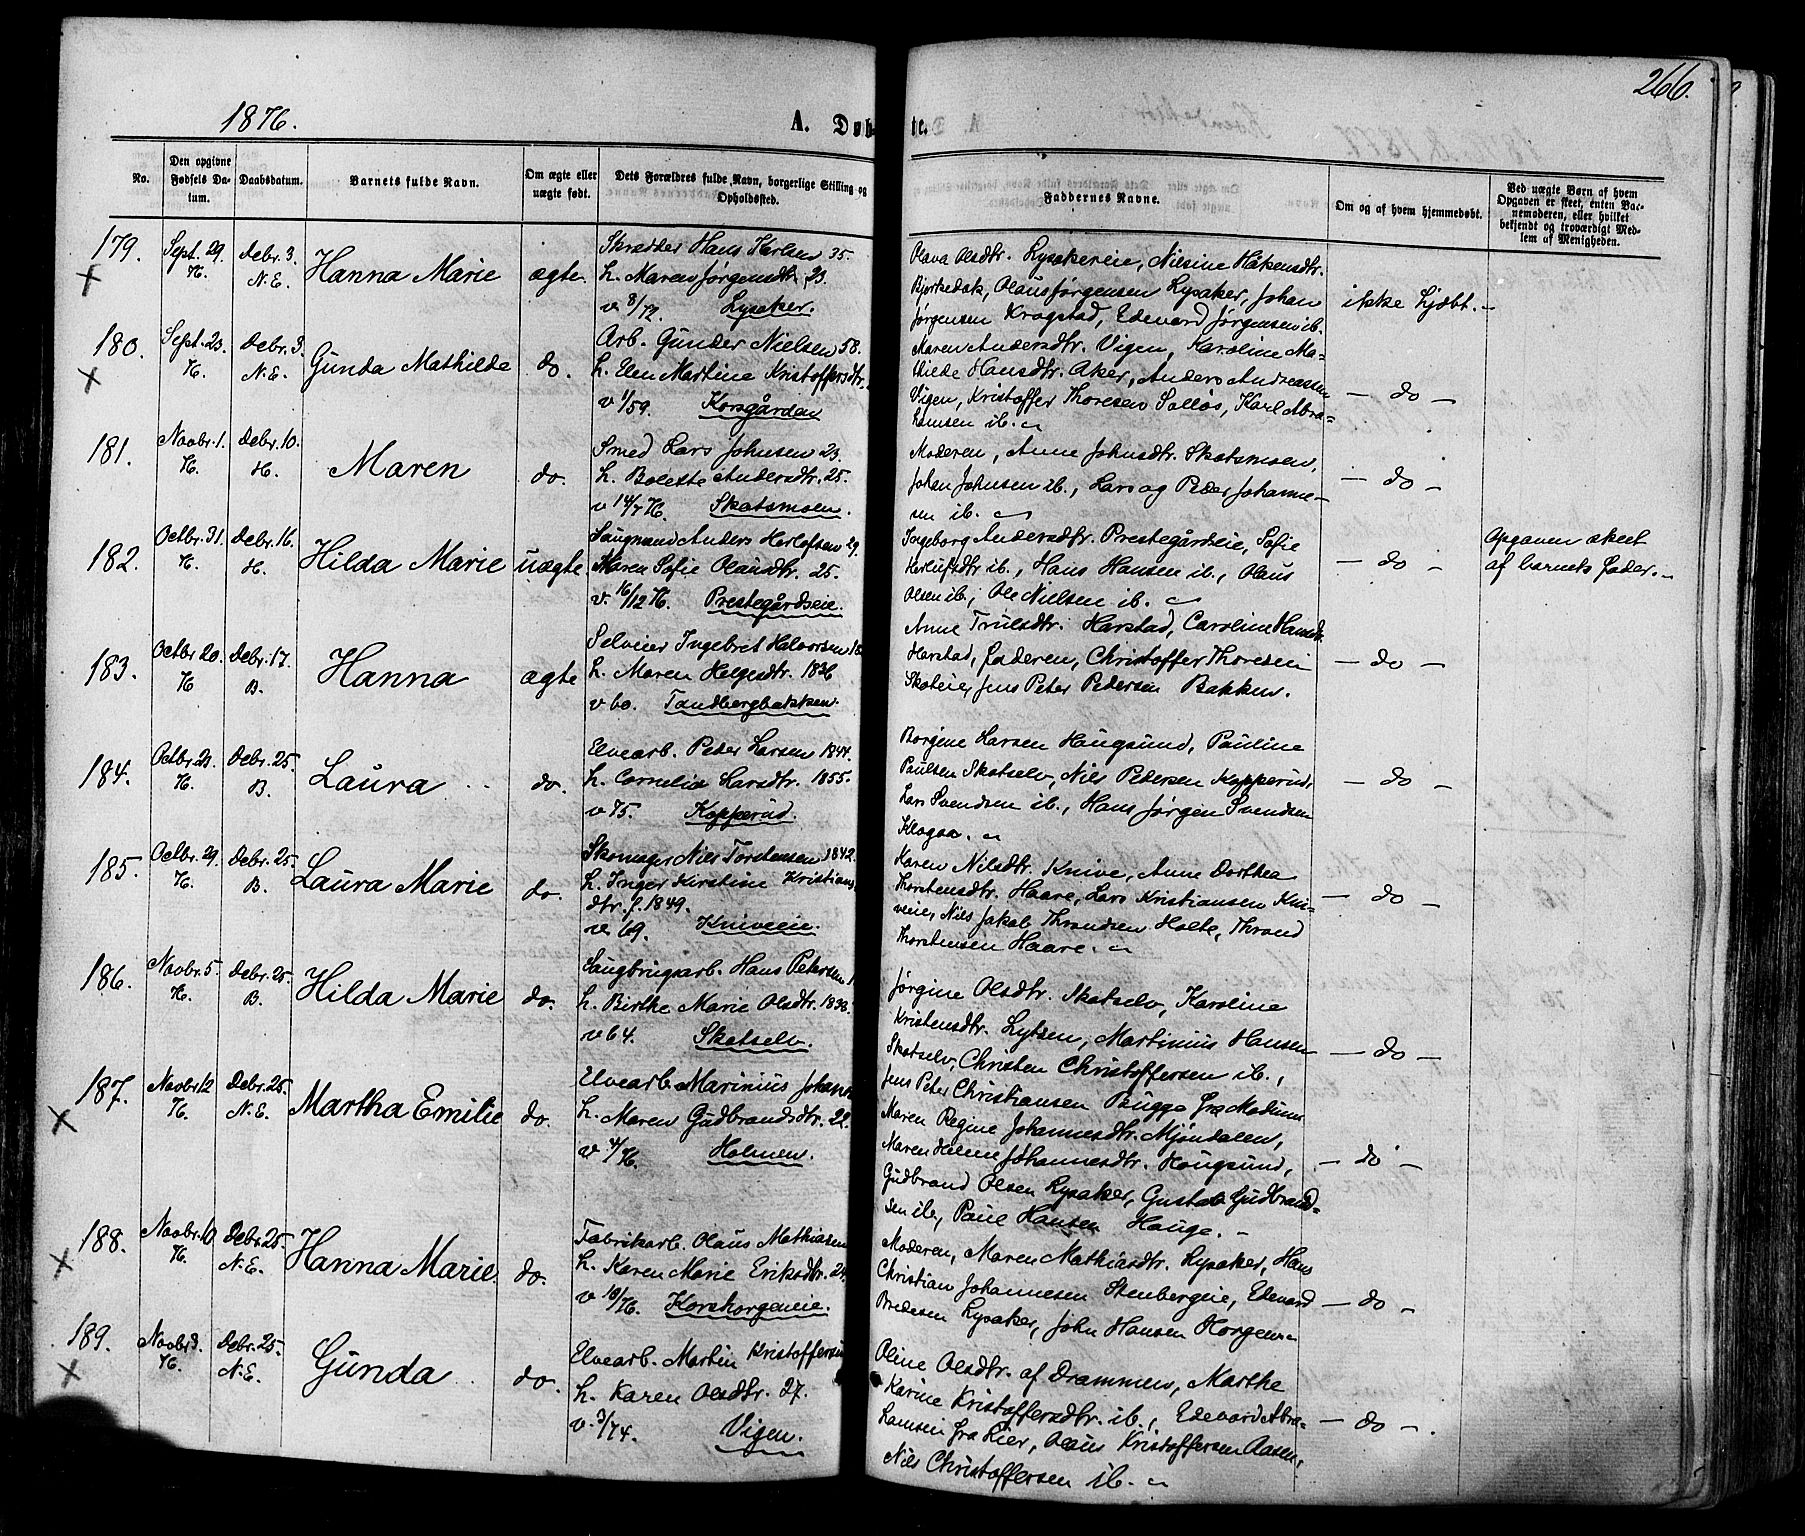 266.
1876.
A. Døbte.
No.
Den opgivne Fødsels Datum.
Daabsdatum.
Barnets fulde Navn.
Om ægte eller uægte født.
Dets Forældres fulde Navn, borgerlige Stilling og Opholdssted.
Faddernes Navne.
Om og af hvem hjemmedøbt.
Ved uægte Børn af hvem Opgaven er skeet, enten Barnemoderen, eller hvilket bekjendt og troværdigt Medlem af Menigheden.
179.
Sept. 29. 76.
Debr. 3. N.E.
Hanna Marie
ægte
Skrædder Hans Karlsen 35.
h. Maren Jørgensdtr. 23.
v. 8/72. Lysaker.
Olava Olsdtr. Lysakereie, Nilsine Håkensdtr.
Bjerkedok, Olaus Jørgensen Lysaker, Johan
Jørgensen Krogstad, Edevard Jørgensen ib.
ikke hjdøbt. -
180.
Sept. 23. 76.
Debr. 3. N.E.
Gunda Mathilde
do.
Arb. Gunder Nielsen 58.
h. Elen Martine Kristoffersdtr.
v 1/59. Korsgården
Maren Andersdtr. Vigen, Karoline Ma-
thilde Hansdtr. Aker, Anders Andreassen
Vigen, Kristoffer Thoresen Solløs, Karl Abra-
hamsen ib.
- do -
181.
Novbr. 1. 76.
Debr. 10. H.
Maren
do.
Smed Lars Johnsen 23.
h. Bolette Andersdtr. 25.
v 14/7 76. Skotsmoen.
Moderen, Anne Johnsdtr. Skotsmoen,
Johan Johnsen ib., Lars og Peder Johanne-
sen ib.
- do -
182.
Octbr. 31. 76.
Debr. 16. H.
Hilda Marie
uægte
Saugmand Anders Herlofsen 29.
Maren Sofie Olausdtr. 25.
v. 16/12 76. Prestegårdseie.
Ingeborg Andersdtr. Prestegårdseie, Sofie
Herlufsdtr ib., Hans Hansen ib., Olaus
Olsen ib., Ole Nielsen ib.
- do -
Opgaven skeet
af barnets fader. -
183.
Octbr 20. 76
Debr. 17. B.
Hanna
ægte
Selveier Ingebret Halvorsen 18
h. Maren Helgesdtr. 1836
v 60. Tandbergbakken.
Anne Trulsdtr. Harstad, Caroline Hansdtr
Harstad, faderen, Christoffer Thoresen
Skoteier, Jens Peter Pedersen Bakken.
- do -
184.
Octbr. 23. 76.
Debr. 25. B.
Laura
do.
Elvearb. Peder Larsen 1844.
h. Cornelia Larsdtr. 1855.
v 75. Kopperud.
Borgine Larsen Hougsund, Pauline
Paulsen Skotselv, Nils Pedersen Kopperud,
Lars Svendsen ib., Hans Jørgen Svendsen
- do -
185.
Octbr. 29. 76.
Debr. 25. B.
Laura Marie
do.
Skomager Nils Torstensen 1842.
h. Inger Kirstine Kristians
dtr. f. 1849.
v 69. Kniveeie.
Karen Nilsdtr. Knive, Anne Dorthea
Thorstensdtr. Haare, Lars Kristiansen Kni-
veeie, Nils Jakob Thrandsen Holte, Thrond
Thorstensen Haare.
- do -
186.
Novbr. 5. 76.
Debr. 25. B.
Hilda Marie
do.
Saugbrugsarb. Hans Petersen 1
h. Birthe Marie Olsdtr. 1838.
v 64. Skotselv.
Jørgine Olsdtr. Skotselv, Karoline
Kristensdtr. Lytsen, Martinius Hansen
Skotselv, Christen Christoffersen ib.,
Jens Peter Christiansen Bugge fra Modum
- do -
187.
Novbr. 12 76.
Debr. 25. N.E.
Martha Emilie
do.
Elvearb. Marinius Johann
h. Maren Gudbrandsdtr. 22.
v 4/76. Holmen.
Maren Regine Johannesdtr. Mjøndalen,
Maren Helene Johannesdtr. Hougsund,
Gudbrand Olsen Lysaker, Gustav Gudbrand-
sen ib., Paul Hansen Houge. -
- do -
188.
Novbr. 10 76.
Debr. 25. N.E.
Hanna Marie.
do.
Fabrikarb. Olaus Mathiasen
h. Karen Marie Eriksdtr. 24
v 10/76. Korshorgeneie.
Moderen, Maren Mathiasdtr. Lysaker, Hans
Christian Johannesen Stenbergeie, Edevard
Bredesen Lysaker, John Hansen Horgen
- do -
189.
Novbr. 3. 76.
Debr. 25. N.E.
Gunda
do.
Elvearb. Martin Kristoffersen
h. Karen Olsdtr. 27.
v. 3/74. Vigen.
Oline Olsdtr. af Drammen, Marthe
Karine Kristoffersdtr. ib., Edevard Abra-
hamsen fra Lier, Olaus Kristoffersen Aasen,
Nils Christoffersen ib.
- do -.